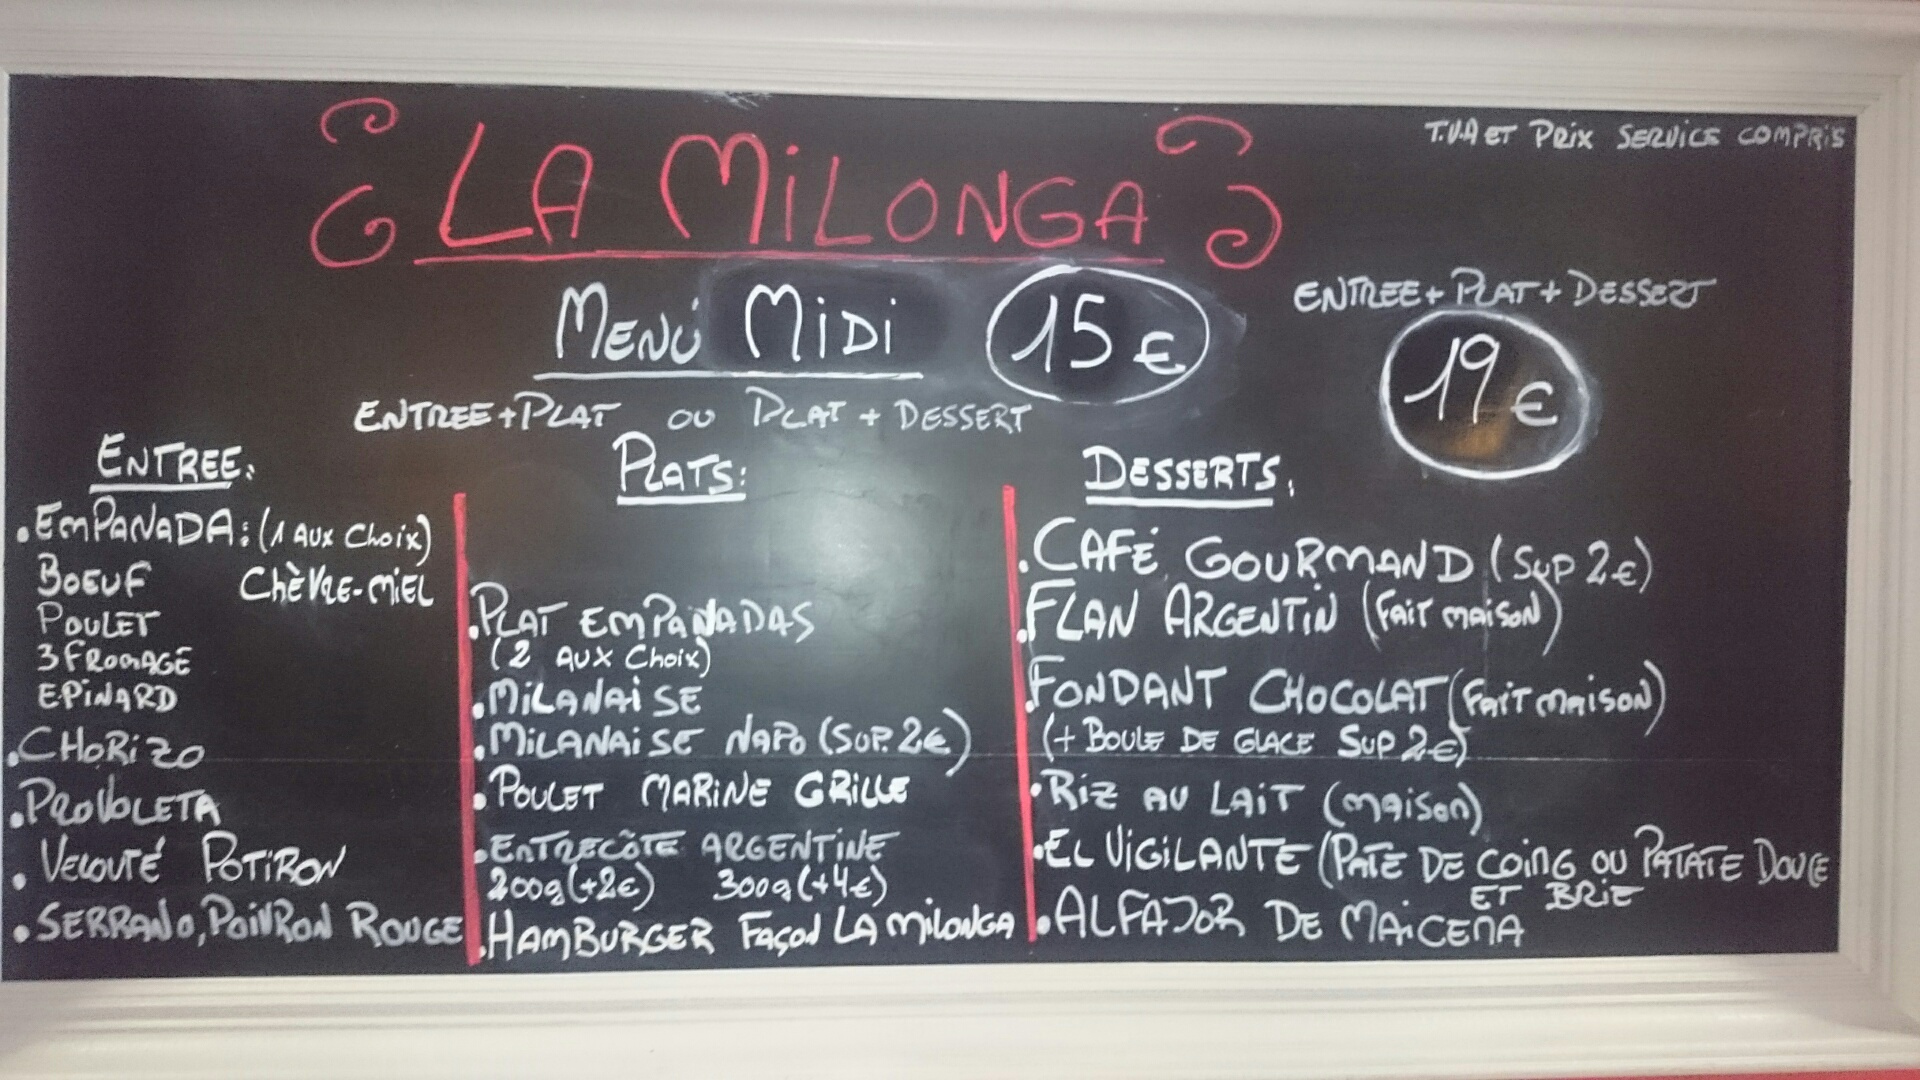 LA MILONGA
T.V.A ET PRIX SERVICE COMPRIS
MENÚ MIDI 15€
ENTREE+PLAT OU PLAT + DESSERT
ENTREE+PLAT+DESSERT
19€
ENTREE:
.EMPANADA: (1 AUX CHOIX)
BOEUF CHÈVRE-MIEL
POULET
3 FROMAGE
EPINARD
.CHORIZO
.PROVOLETA
. VELOUTÉ POTIRON
. SERRANO, POIVRON ROUGE
PLATS:
.PLAT EMPANADAS
(2 AUX CHOIX)
.MILANAISE
.MILANAISE NAPO (SUP. 2€)
.POULET MARINE GRILLE
.ENTRECÔTE ARGENTINE
200g (+2€) 300g (+4€)
.HAMBURGER FAÇON LA MILONGA
DESSERTS:
.CAFÉ GOURMAND (SUP 2€)
.FLAN ARGENTIN (FAIT MAISON)
.FONDANT CHOCOLAT (FAIT MAISON)
(+ BOULE DE GLACE SUP 2€)
.RIZ AU LAIT (MAISON)
.EL VIGILANTE (PATE DE COING OU PATATE DOUCE
ET BRIE
.ALFAJOR DE MAICENA